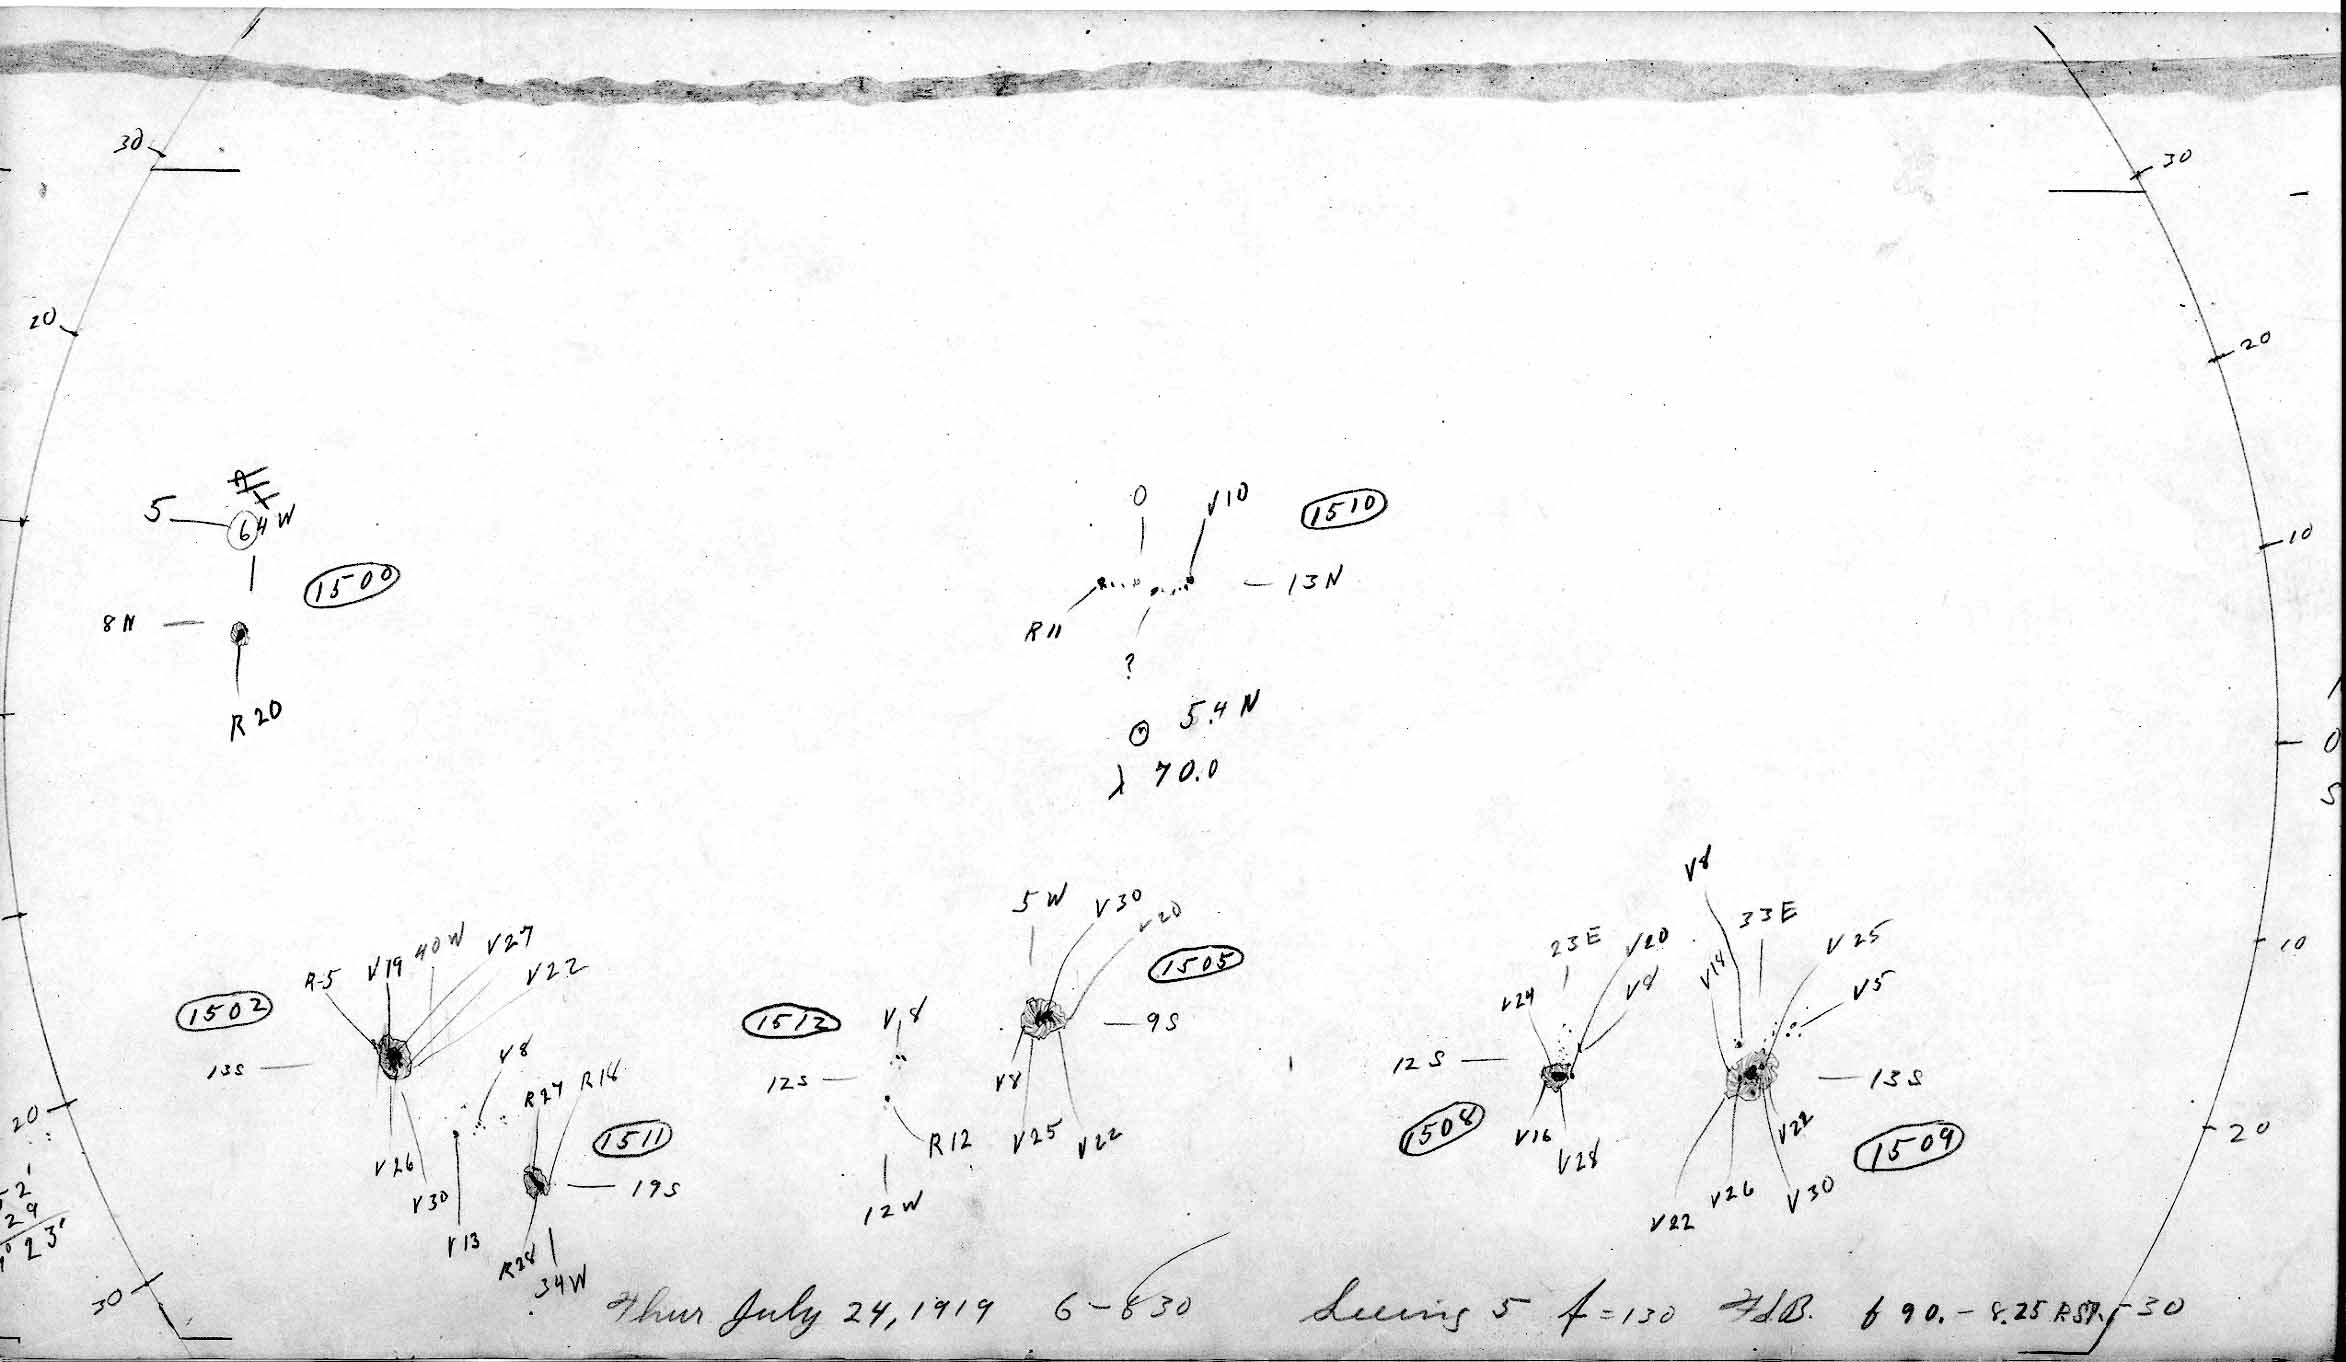 30
30
20
20
5
64W
1500
8N
R20
10
0
V10
1510
13N
R11
?
⊙ 5.4 N
λ 70.0
0
S
R-5
V19
40W
V27
V22
1502
13S
V26
V30
V8
V13
R27
R18
1511
19S
R28
34W
1512
V8
12S
R12
12W
5W
V30
V20
1505
9S
V8
V25
V22
23E
V20
V8
V24
12S
1508
V16
V28
V8
33E
V14
V25
V5
13S
V22
1509
V22
V26
V30
10
20
20
29
23'
30
Thur July 24, 1919 6-830 Seeing 5 f=130 30